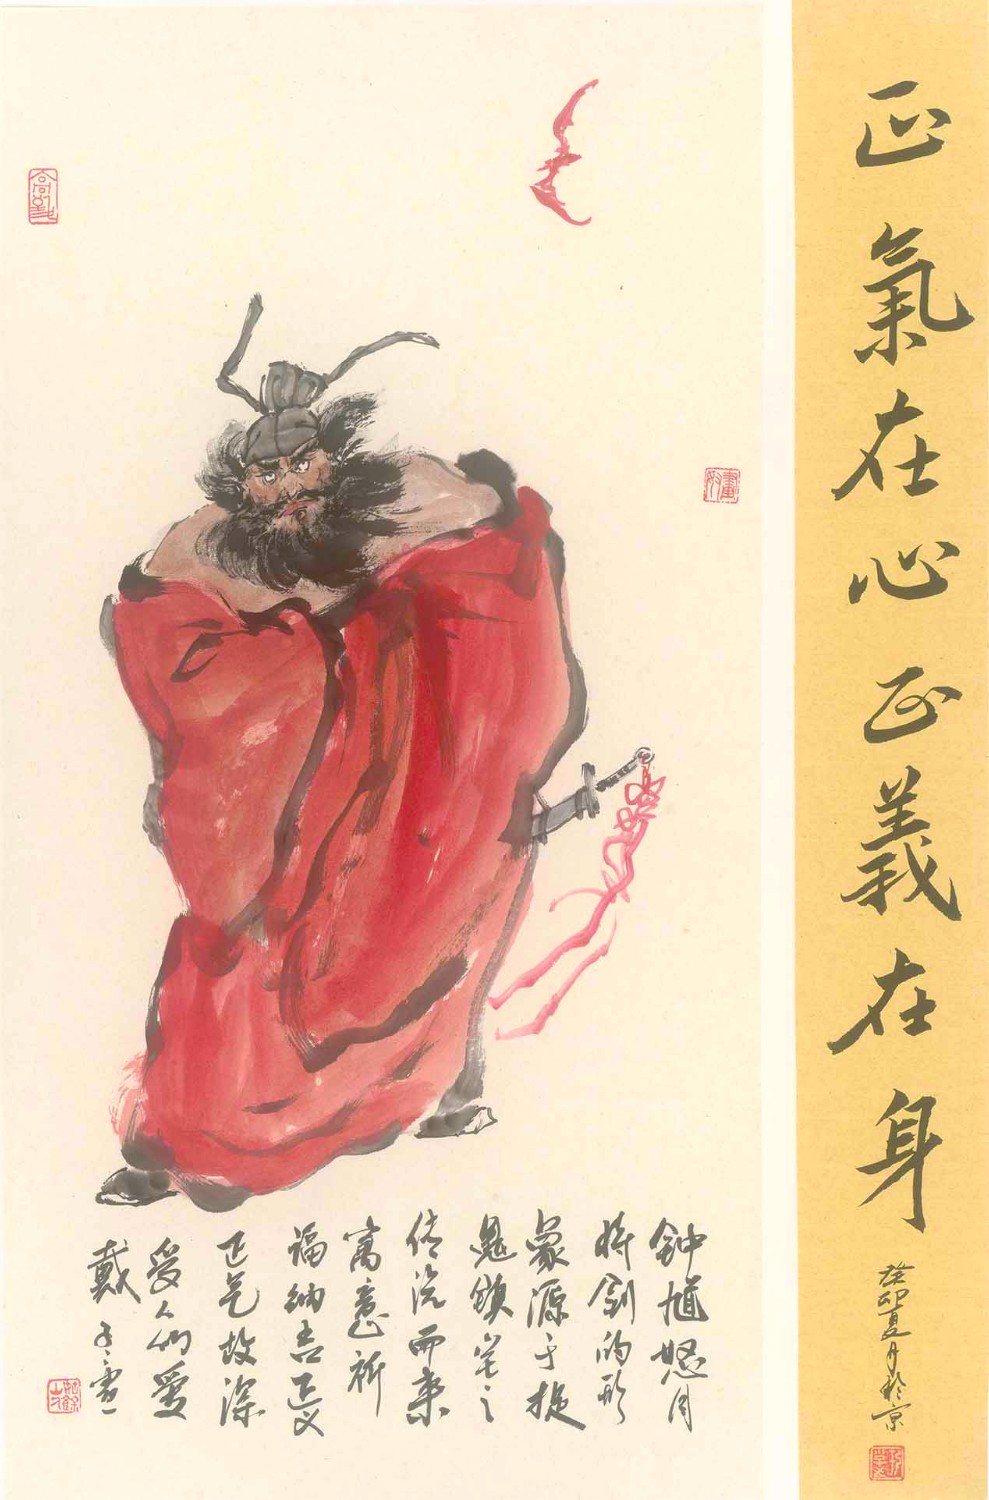 正氣在心正義在身
癸卯夏月於京
钟馗怒目
持剑的形
象源于捉
鬼镇宅之
传说而来
寓意祈
福纳吉正义
正气故深
受人们爱
戴